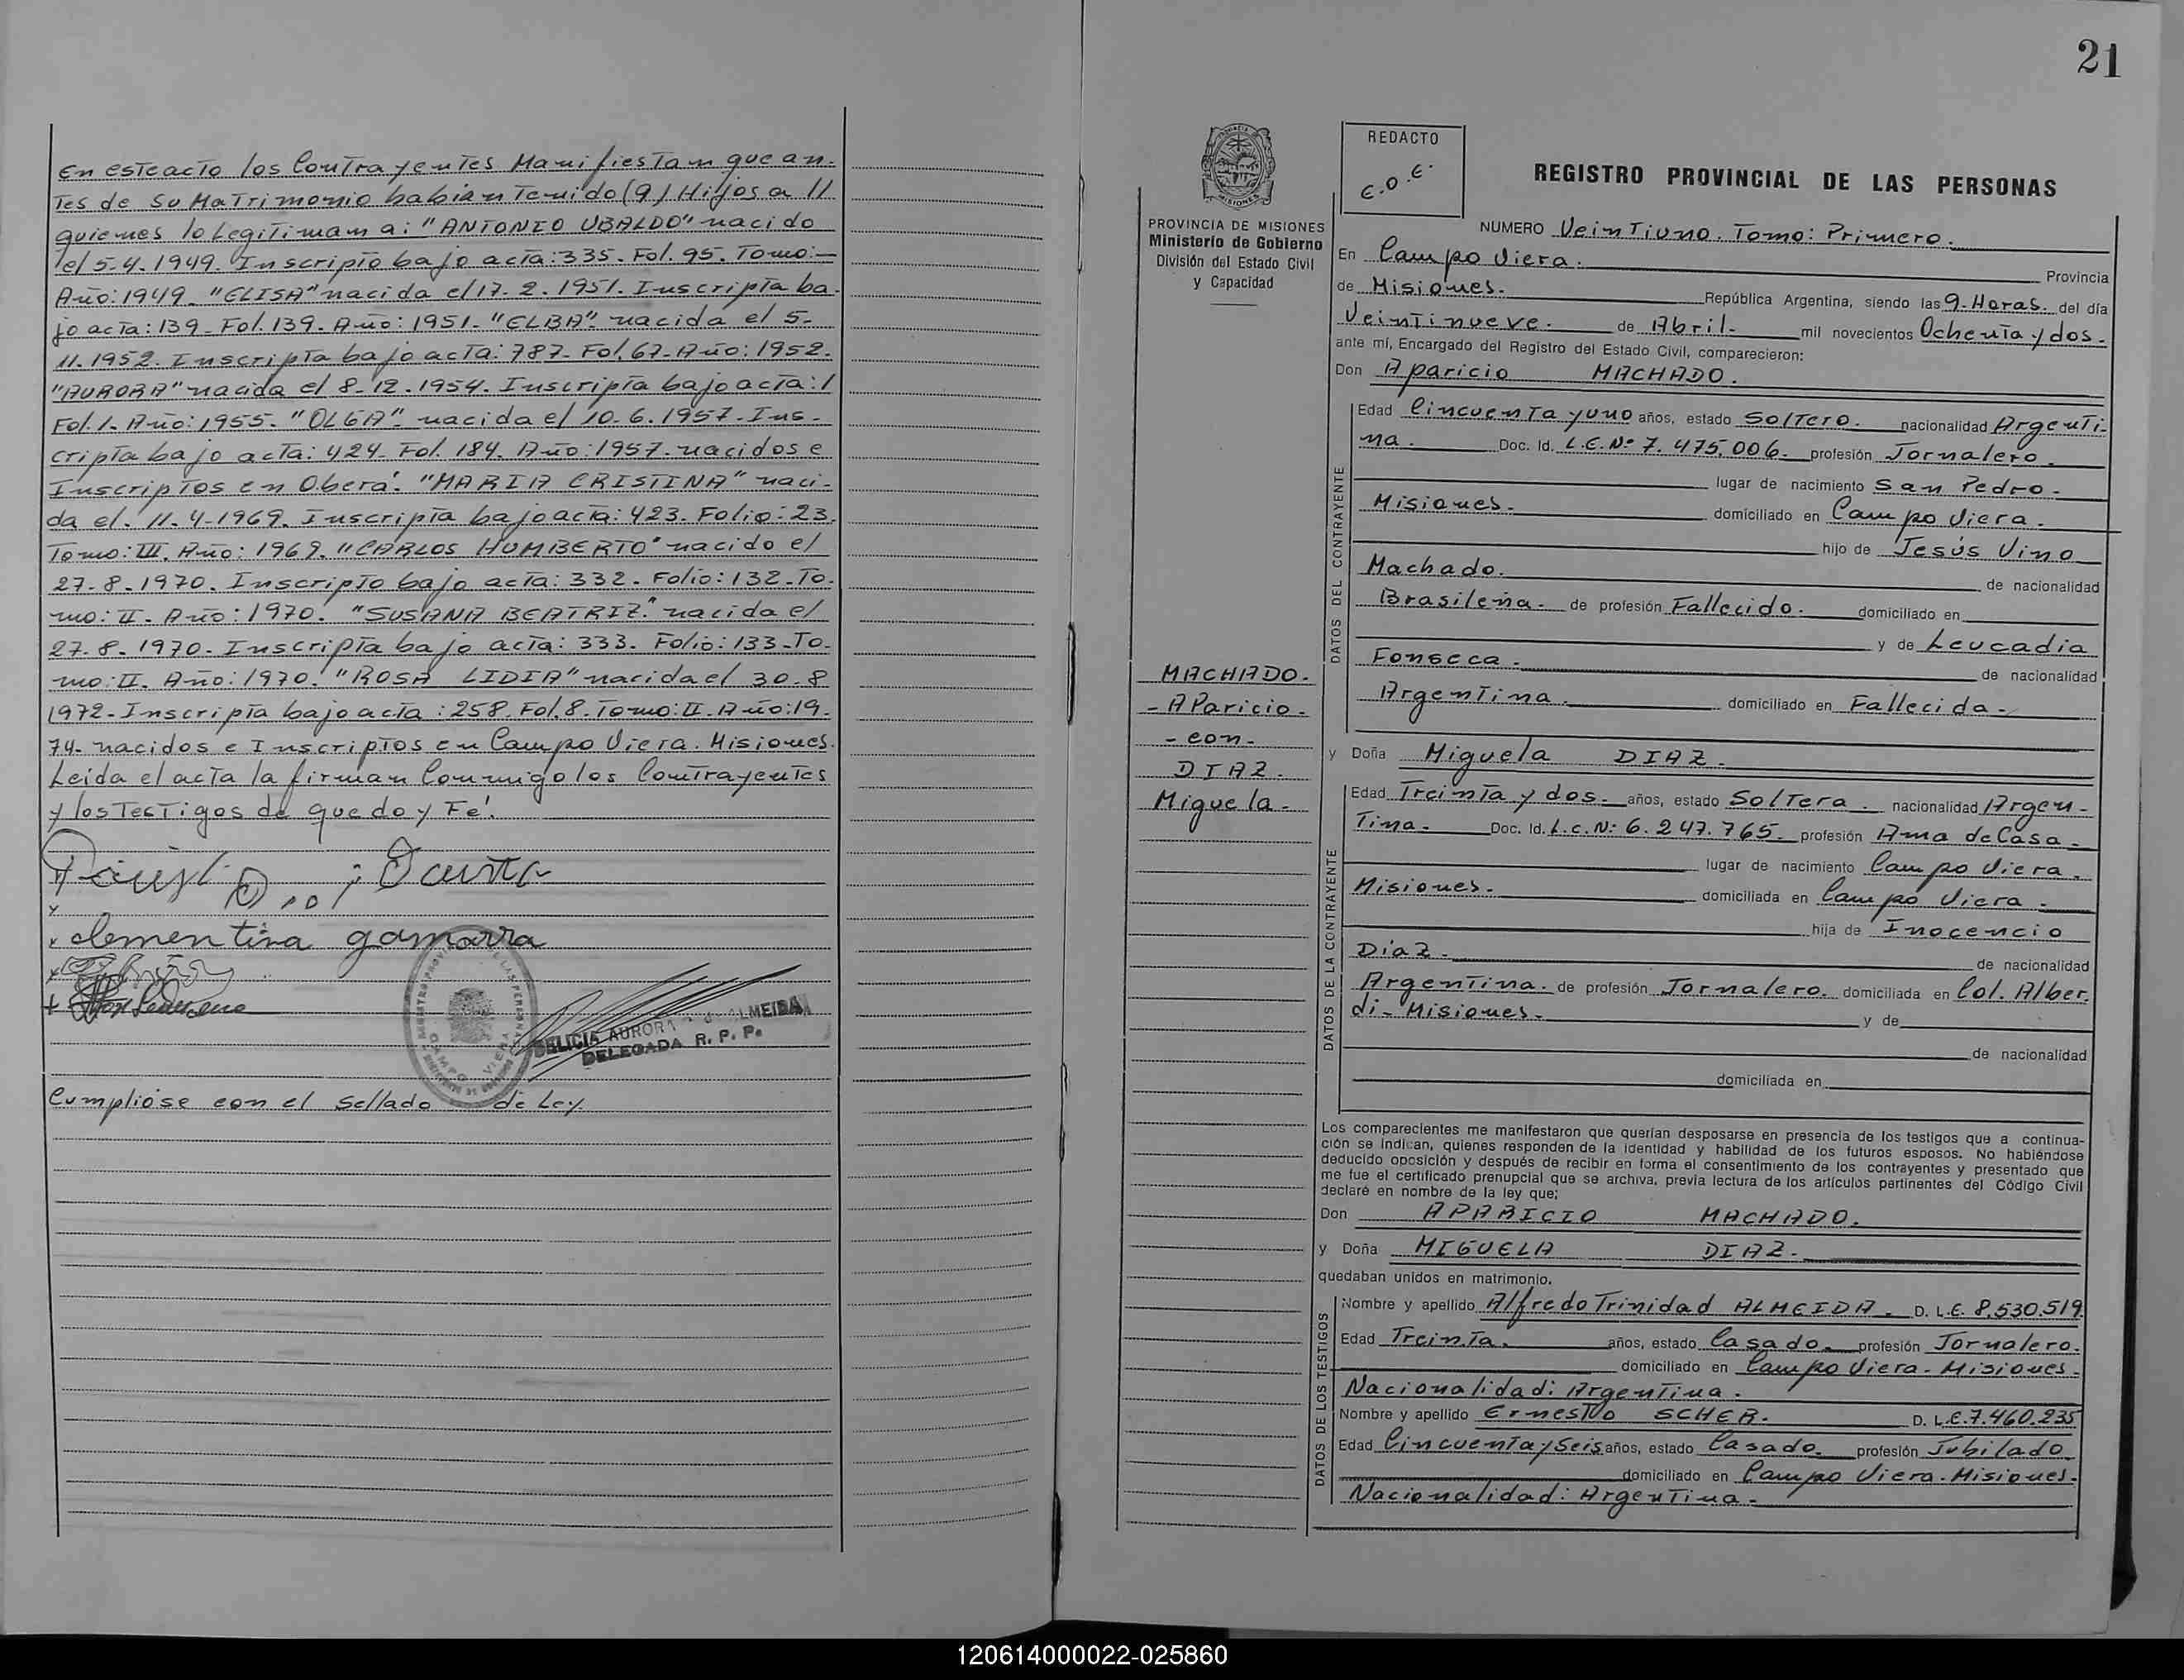 En este acto los Contrayentes Manifiestan que an-
tes de su Matrimonio habían tenido (9) Hijos a //
quienes lo Legitimam a: "ANTONIO UBALDO" nacido
el 5-4-1949. Inscripto bajo acta: 335. Fol. 95. Tomo:—
Año: 1949. "ELISA" nacida el 17-2-1951. Inscripta ba-
jo acta: 139- Fol. 139. Año: 1951. "ELBA"- nacida el 5-
11.1952. Inscripta bajo acta: 787- Fol. 67- Año: 1952.
"AURORA" nacida el 8-12.1954. Inscripta bajo acta: 1
Fol. 1. Año: 1955. "OLGA"- nacida el 10-6.1957- Ins-
cripta bajo acta: 424- Fol. 184. Año: 1957. nacidos e
Inscriptos en Oberá. "MARIA CRISTINA" naci-
da el. 11.4-1969. Inscripta bajo acta: 423. Folio: 23.
Tomo: III. Año: 1969. "CARLOS HUMBERTO" nacido el
27-8-1970. Inscripto bajo acta: 332- Folio: 132-To-
mo: II. Año: 1970. "SUSANA BEATRIZ." nacida el
27-8-1970- Inscripta bajo acta: 333. Folio: 133-To-
mo: II. Año: 1970. "ROSA LIDIA" nacida el 30-8
1972- Inscripta bajo acta: 258. Fol. 8. Tomo: II. Año: 19-
74- nacidos e Inscriptos en Campo Viera. Misiones.
Leida el acta la firman Conmigo los Contrayentes
y los Testigos de que doy Fé.
x clementina gamarra
DELICIA AURORA de ALMEIDA
DELEGADA R. P. P.
CAMPO VIERA
Cumplióse con el Sellado de Ley.
21
PROVINCIA DE MISIONES
Ministerio de Gobierno
División del Estado Civil
y Capacidad
REDACTO
E.O.E.
REGISTRO PROVINCIAL DE LAS PERSONAS
NUMERO Veintiuno. Tomo: Primero.
En Campo Viera. Provincia
de Misiones. República Argentina, siendo las 9-Horas. del día
Veintinueve. de Abril- mil novecientos Ochenta y dos-
ante mí, Encargado del Registro del Estado Civil, comparecieron:
Don Aparicio MACHADO.
DATOS DEL CONTRAYENTE
Edad Cincuenta y uno años, estado Soltero. nacionalidad Argenti-
na. Doc. Id. L.E.Nº 7.475.006- profesión Jornalero.
lugar de nacimiento San Pedro-
Misiones. domiciliado en Campo Viera.
hijo de Jesús Vino
Machado. de nacionalidad
Brasileña. de profesión Fallecido. domiciliado en
y de Leucadia
Fonseca. de nacionalidad
Argentina. domiciliado en Fallecida-
MACHADO.
- Aparicio-
- con-
DIAZ.
Miguela-
y Doña Miguela DIAZ.
DATOS DE LA CONTRAYENTE
Edad Treinta y dos- años, estado Soltera. nacionalidad Argen-
tina. Doc. Id. L.C.N: 6.247.765- profesión Ama de Casa-
lugar de nacimiento Campo Viera.
Misiones. domiciliada en Campo Viera.
hija de Inocencio
Díaz. de nacionalidad
Argentina. de profesión Jornalero. domiciliada en Col. Alber-
di- Misiones- y de
de nacionalidad
domiciliada en
Los comparecientes me manifestaron que querían desposarse en presencia de los testigos que a continua-
ción se indican, quienes responden de la identidad y habilidad de los futuros esposos. No habiéndose
deducido oposición y después de recibir en forma el consentimiento de los contrayentes y presentado que
me fue el certificado prenupcial que se archiva, previa lectura de los artículos pertinentes del Código Civil
declaré en nombre de la ley que;
Don APARICIO MACHADO.
y Doña MIGUELA DIAZ-
quedaban unidos en matrimonio.
DATOS DE LOS TESTIGOS
Nombre y apellido Alfredo Trinidad ALMEIDA. D. L.E. 8.530.519
Edad Treinta. años, estado Casado. profesión Jornalero.
domiciliado en Campo Viera- Misiones-
Nacionalidad: Argentina.
Nombre y apellido Ernesto SCHER. D. L.E.7.460.235
Edad Cincuenta y Seis años, estado Casado. profesión Jubilado
domiciliado en Campo Viera. Misiones-
Nacionalidad: Argentina-
120614000022-025860